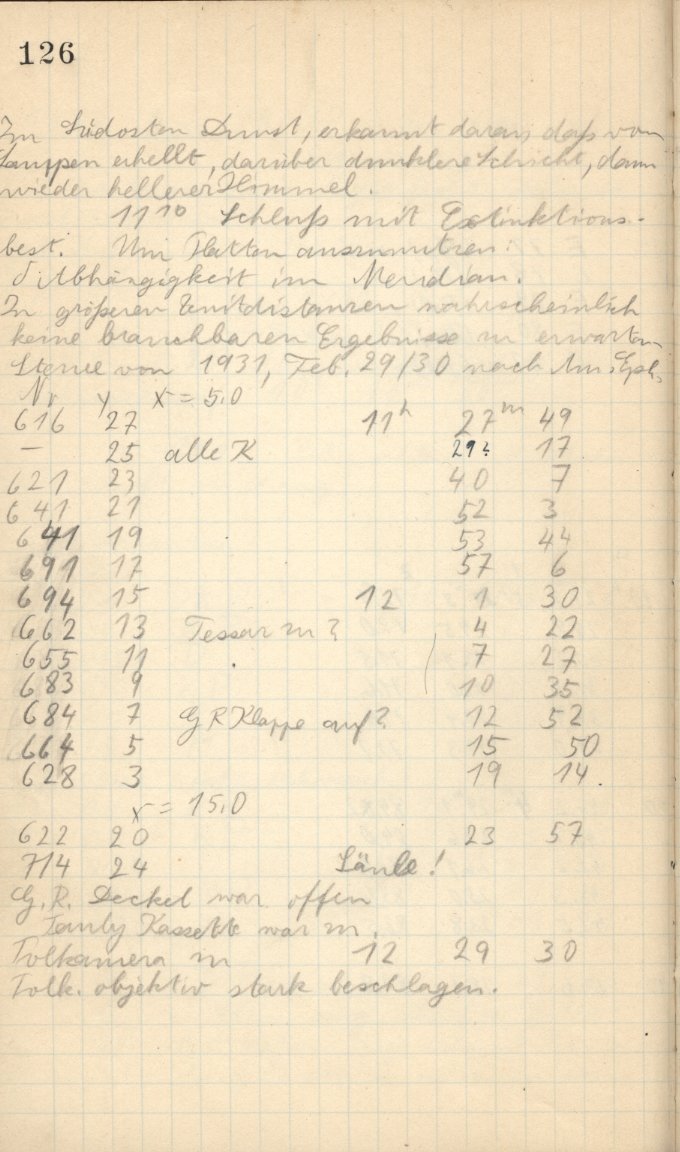 126
Im Südosten Dunst, erkannt daran, daß von
Lampen erhellt, darüber dunklere Schicht, dann
wieder hellerer Himmel.
11 10 Schluß mit Extinktions-
best. Um Platten auszunutzen:
δ Abhängigkeit im Meridian.
In größeren Zenitdistanzen wahrscheinlich
keine brauchbaren Ergebnisse zu erwarten
Sterne von 1931, Feb. 29/30 nach Am. Eph.
Nr y x = 5,0
616 27 11h 27m 49
— 25 alle K 29? 17
621 23 40 7
641 21 52 3
641 19 53 44
691 17 57 6
694 15 12 1 30
662 13 Tessar zu? 4 22
655 11 7 27
683 9 10 35
684 7 G R Klappe auf? 12 52
664 5 15 50
628 3 19 14.
x = 15,0
622 20 23 57
714 24 Säule!
G. R. Deckel war offen
Kassette war zu.
Polkamera zu 12 29 30
Polk. objektiv stark beschlagen.